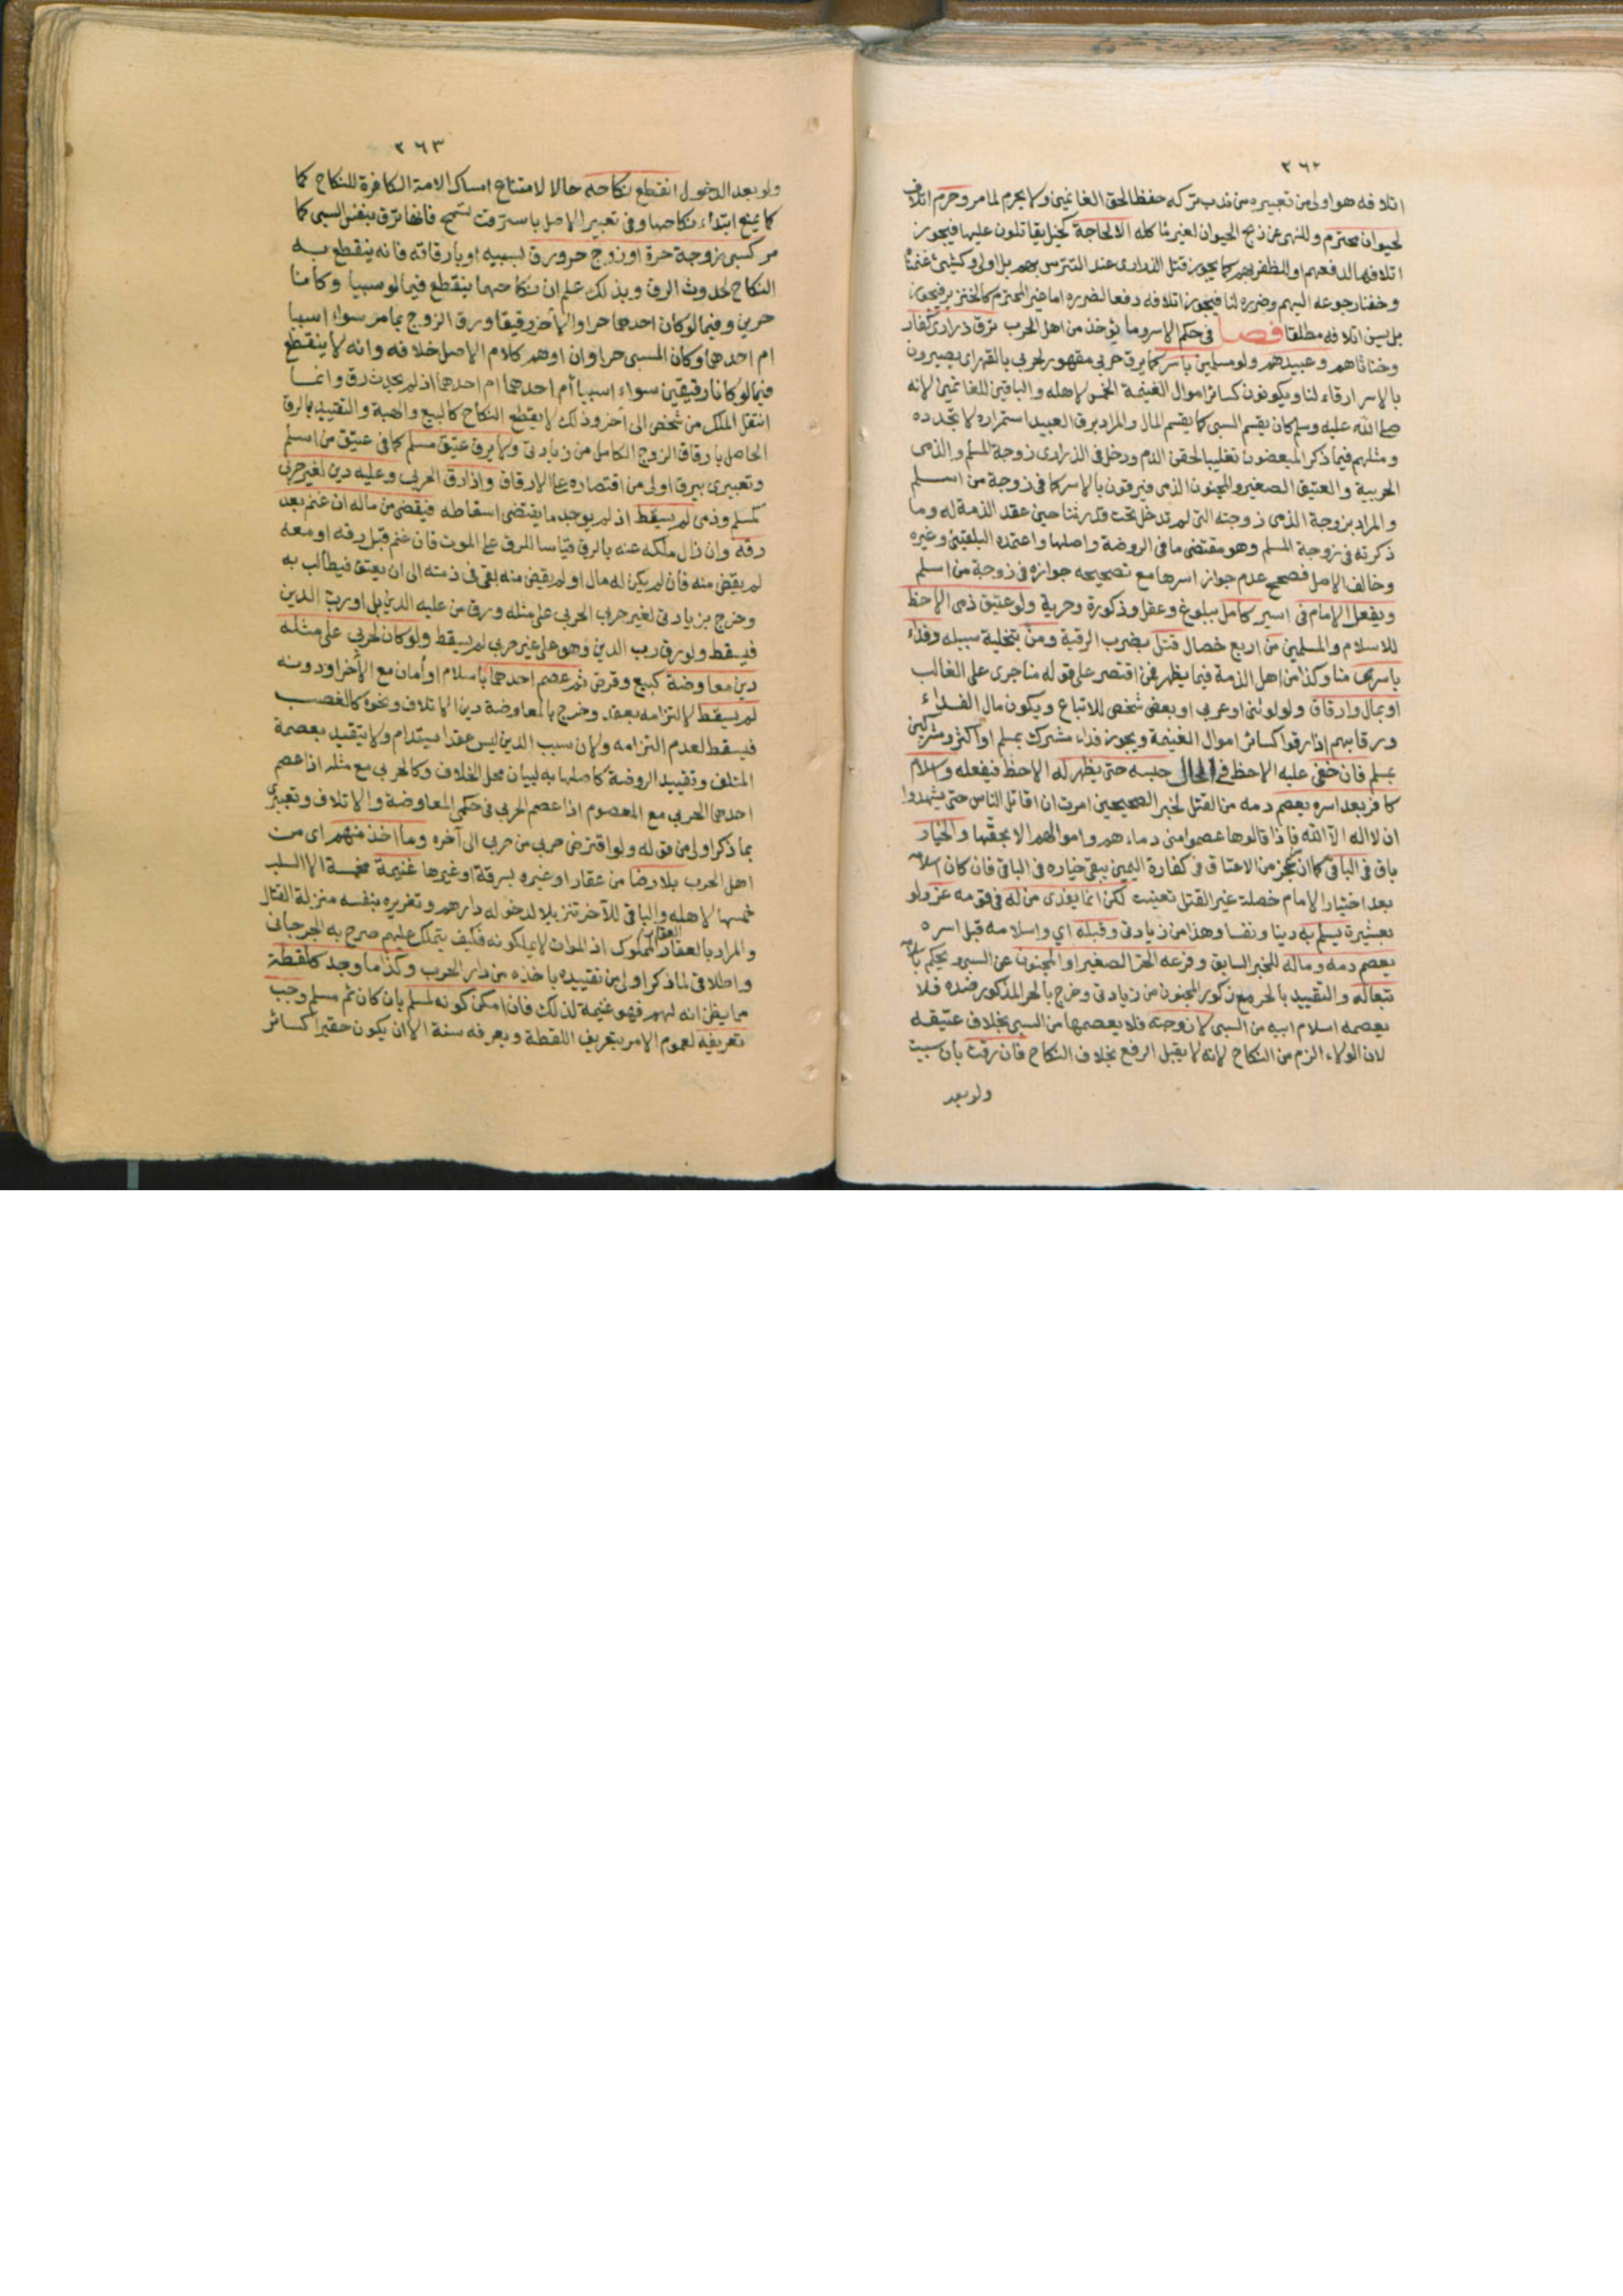 ٢٦٢
اتلافه هو اولى من تعبيره من ندب تركه حفظا لحق الغانمين ولا يحرم لما مر وحرم اتلاف
لحيوان محترم وللنهى عن ذبح الحيوان لغير مأكله الا لحاجة كخيل يقاتلون عليها فيجوز
اتلافها لدفعهم او للظفر بهم كما يجوز قتل الذرارى عند التترس بهم بل اولى وكشئ غنمناه
وخفنا رجوعه اليهم وضرره لنا فيجوز اتلافه دفعا لضرره اما غير المحترم كالخنزير فيجوز
بل يسن اتلافه مطلقا فصل فى حكم الاسر وما يؤخذ من اهل الحرب ترق ذرارى كفار
وخناثاهم وعبيدهم ولو مسلمين باسر كما يرق حربي مقهور لحربي بالقهر اى يصيرون
بالاسر ارقاء لنا ويكونون كسائر اموال الغنيمة الخمس لاهله والباقى للغانمين لانه
صلى الله عليه وسلم كان يقسم السبى كما يقسم المال والمراد برق العبيد استمراره لا تجدده
ومثلهم فيما ذكر المبعضون تغليبا لحقن الدم ودخل فى الذرارى زوجة المسلم والذمى
الحربية والعتيق الصغير والمجنون الذمى فيرقون بالاسر كما فى زوجة من اسلم
والمراد بزوجة الذمى زوجته التى لم تدخل تحت قدرتنا حين عقد الذمة له وما
ذكرته فى زوجة المسلم وهو مقتضى ما فى الروضة واصلها واعتمده البلقينى وغيره
وخالف الاصل فصحح عدم جواز اسرها مع تصحيحه جوازه فى زوجة من اسلم
ويفعل الامام فى اسير كامل ببلوغ وعقل وذكورة وحرية ولو عتيق ذمى الاحظ
للاسلام والمسلمين من اربع خصال قتل بضرب الرقبة ومن بتخلية سبيله وفداء
باسرى منا وكذا من اهل الذمة فيما يظهر فمن اقتصر على قوله منا جرى على الغالب
او بمال وارقاق ولو لوثنى او عربي او بعض شخص للاتباع ويكون مال الفداء
ورقابهم اذا رقوا كسائر اموال الغنيمة ويجوز فداء مشرك بمسلم او اكثر ومشركين
بمسلم فان خفى عليه الاحظ فى الحال حبسه حتى يظهر له الاحظ فيفعله واسلام
كافر بعد اسره يعصم دمه من القتل لخبر الصحيحين امرت ان اقاتل الناس حتى يشهدوا
ان لا اله الا الله فاذا قالوها عصموا منى دماءهم واموالهم الا بحقها والخيار
باق فى الباقى كما ان عجز من الاعتاق فى كفارة اليمين يبقى خياره فى الباقى فان كان اسلامه
بعد اختيار الامام خصلة غير القتل تعينت لكن انما يفدى من له فى قومه عز ولو
بعشيرة يسلم به دينا ونفسا وهذا من زيادتى وقبله اي واسلامه قبل اسره
يعصم دمه وماله للخبر السابق وفرعه الحر الصغير او المجنون عن السبى ويحكم باسلامه
تبعا له والتقييد بالحر مع ذكور المجنون من زيادتى وخرج بالحر المذكور ضده فلا
يعصمه اسلام ابيه من السبى لا زوجته فلا يعصمها من السبى بخلاف عتيقه
لان الولاء الزم من النكاح لانه لا يقبل الرفع بخلاف النكاح فان رقت بان سبيت
ولو بعد
٢٦٣
ولو بعد الدخول انقطع نكاحه حالا لامتناع امساك الامة الكافرة للنكاح كما
كما يمنع ابتداء نكاحها وفى تعبير الاصل باسترقت تسمح فانها ترق بنفس السبى كما
مر كسبى زوجة حرة او زوج حر ورق بسبيه او بارقاقه فانه ينقطع به
النكاح لحدوث الرق وبذلك علم ان نكاحهما ينقطع فيما لو سبيا وكانا
حرين وفيما لو كان احدهما حرا والاخر رقيقا ورق الزوج بما مر سواء اسبيا
ام احدهما وكان المسبى حرا وان اوهم كلام الاصل خلافه وانه لا ينقطع
فيما لو كانا رقيقين سواء اسبيا أم احدهما اذ لم يحدث رق وانما
انتقل الملك من شخص الى آخر وذلك لا يقطع النكاح كالبيع والهبة والتقييد بالرق
الحاصل بارقاق الزوج الكامل من زيادتى ولا يرق عتيق مسلم كما فى عتيق من اسلم
وتعبيرى بيرق اولى من اقتصاره على الارقاق واذا رق الحربي وعليه دين لغير حربي
كمسلم وذمى لم يسقط اذ لم يوجد ما يقتضى اسقاطه فيقضى من ماله ان غنم بعد
رقه وان زال ملكه عنه بالرق قياسا للرق على الموت فان غنم قبل رقه او معه
لم يقض منه فان لم يكن له مال او لم يقض منه بقى فى ذمته الى ان يعتق فيطالب به
وخرج بزيادتى لغير حربي الحربي على مثله ورق من عليه الدين بل او رب الدين
فيسقط ولو رق رب الدين وهو على غير حربي لم يسقط ولو كان لحربي على مثله
دين معاوضة كبيع وقرض ثم عصم احدهما باسلام او أمان مع الأخر او دونه
لم يسقط لالتزامه بعقد وخرج بالمعاوضة دين الاتلاف ونحوه كالغصب
فيسقط لعدم التزامه ولان سبب الدين ليس عقدا يستدام ولا يتقيد بعصمة
المتلف وتقييد الروضة كاصلها به لبيان محل الخلاف وكالحربي مع مثله اذا عصم
احدهما الحربي مع المعصوم اذا عصم الحربي فى حكمى المعاوضة والاتلاف وتعبيرى
بما ذكر اولى من قوله ولو اقترض حربي من حربي الى آخره وما اخذ منهم اى من
اهل الحرب بلا رضا من عقار او غيره بسرقة او غيرها غنيمة مخمسة الا السلب
خمسها لاهله والباقى للآخذ تنزيلا لدخوله دارهم وتغريره بنفسه منزلة القتال
والمراد بالعقار العقار المملوك اذ الموات لا يملكونه فكيف يتملك عليهم صرح به الجرجانى
واطلاقى لما ذكر اولى من تقييده باخذه من دار الحرب وكذا ما وجد كلقطة
مما يظن انه لهم فهو غنيمة لذلك فان امكن كونه لمسلم بان كان ثم مسلم وجب
تعريفه لعموم الامر بتعريف اللقطة ويعرفه سنة الا ان يكون حقيرا كسائر